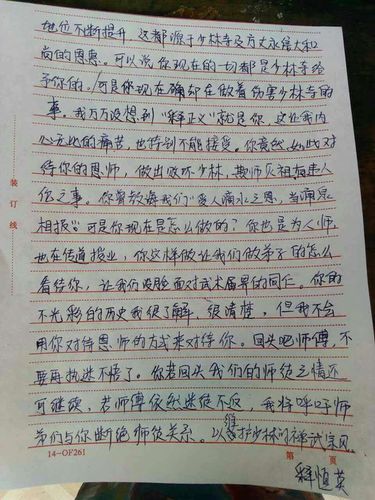 地位不断提升，这都源于少林寺及方丈永信大和
尚的恩惠。可以说你现在的一切都是少林寺给
予你的。可是你现在确却在做着伤害少林寺的
事。我万万没想到“释正义”就是你，这让我内
心无比的痛苦，也特别不能接受。你竟然如此对
待你的恩师，做出败坏少林，欺师灭祖毒人
伦之事。你曾教导我们“受人滴水之恩，当涌泉
相报”。可是你现在是怎么做的？你也是为人师，
也在传道授业，你这样做让我们做弟子的怎么
看待你，让我们没脸面对武术届早的同仁。你的
不光彩的历史我很了解，很清楚，但我不会
用你对待恩师的方式来对待你。回头吧师傅，不
要再执迷不悟了。你若回头我们的师徒之情还
可继续，若师傅依然迷途不返，我将呼吁师
弟们与你断绝师徒关系。以维护少林的禅武宗风。
释恒英
装订线
14-OF261
第 页